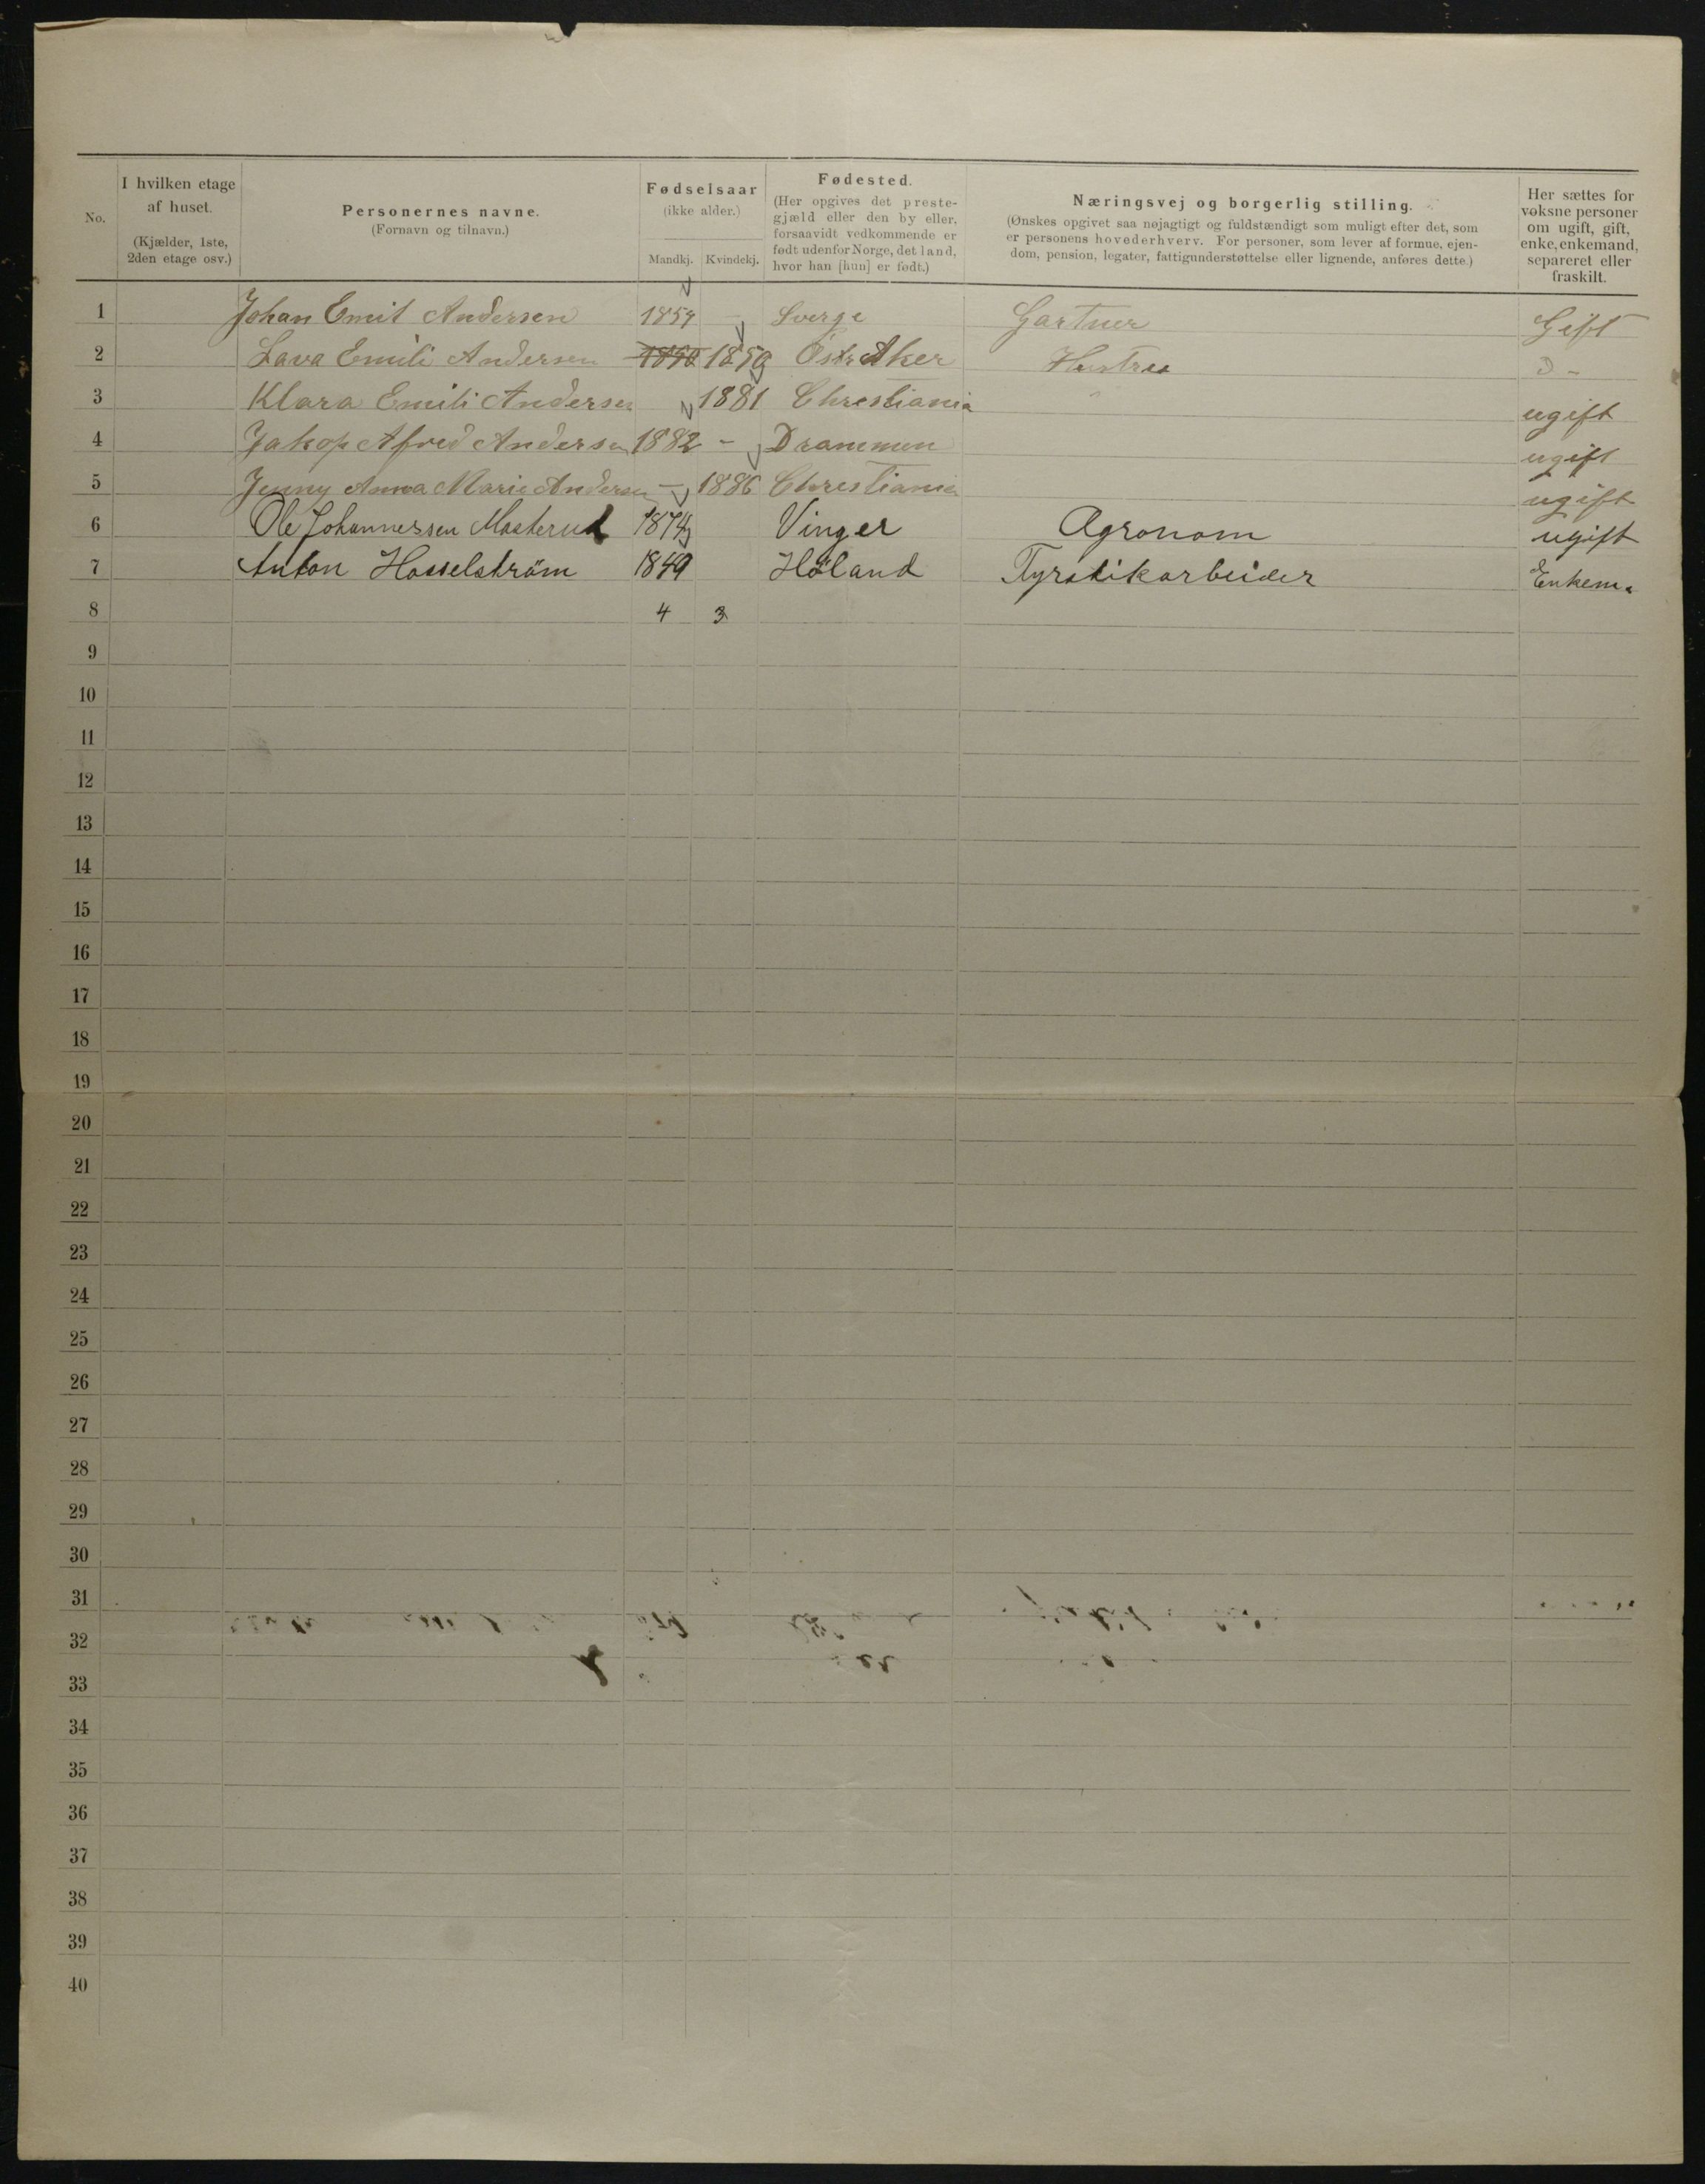 No.
I hvilken etage af huset. (Kjælder, 1ste, 2den etage osv.)
Personernes navne. (Fornavn og tilnavn.)
Fødselsaar (ikke alder.) Mandkj. Kvindekj.
Fødested. (Her opgives det prestegjæld eller den by eller, forsaavidt vedkommende er født udenfor Norge, det land, hvor han [hun] er født.)
Næringsvej og borgerlig stilling. (Ønskes opgivet saa nøjagtigt og fuldstændigt som muligt efter det, som er personens hovederhverv. For personer, som lever af formue, ejendom, pension, legater, fattigunderstøttelse eller lignende, anføres dette.)
Her sættes for voksne personer om ugift, gift, enke, enkemand, separeret eller fraskilt.
1 Johan Emil Andersen 1859 - Sverge Gartner Gift
2 Lava Emili Andersen 1850 1859 Østr Aker Hustru D -
3 Klara Emili Andersen 1881 Chrestiania " ugift
4 Jakop Afred Andersen 1882 - Drammen ugift
5 Jenny Anna Marie Andersen - 1886 Chrestiania ugift
6 Ole Johannessen Masterud 1874 Vinger Agronom ugift
7 Anton Hasselström 1849 Høland Fyrstikarbeider Enkem.
8 4 3
9
10
11
12
13
14
15
16
17
18
19
20
21
22
23
24
25
26
27
28
29
30
31
32
33
34
35
36
37
38
39
40